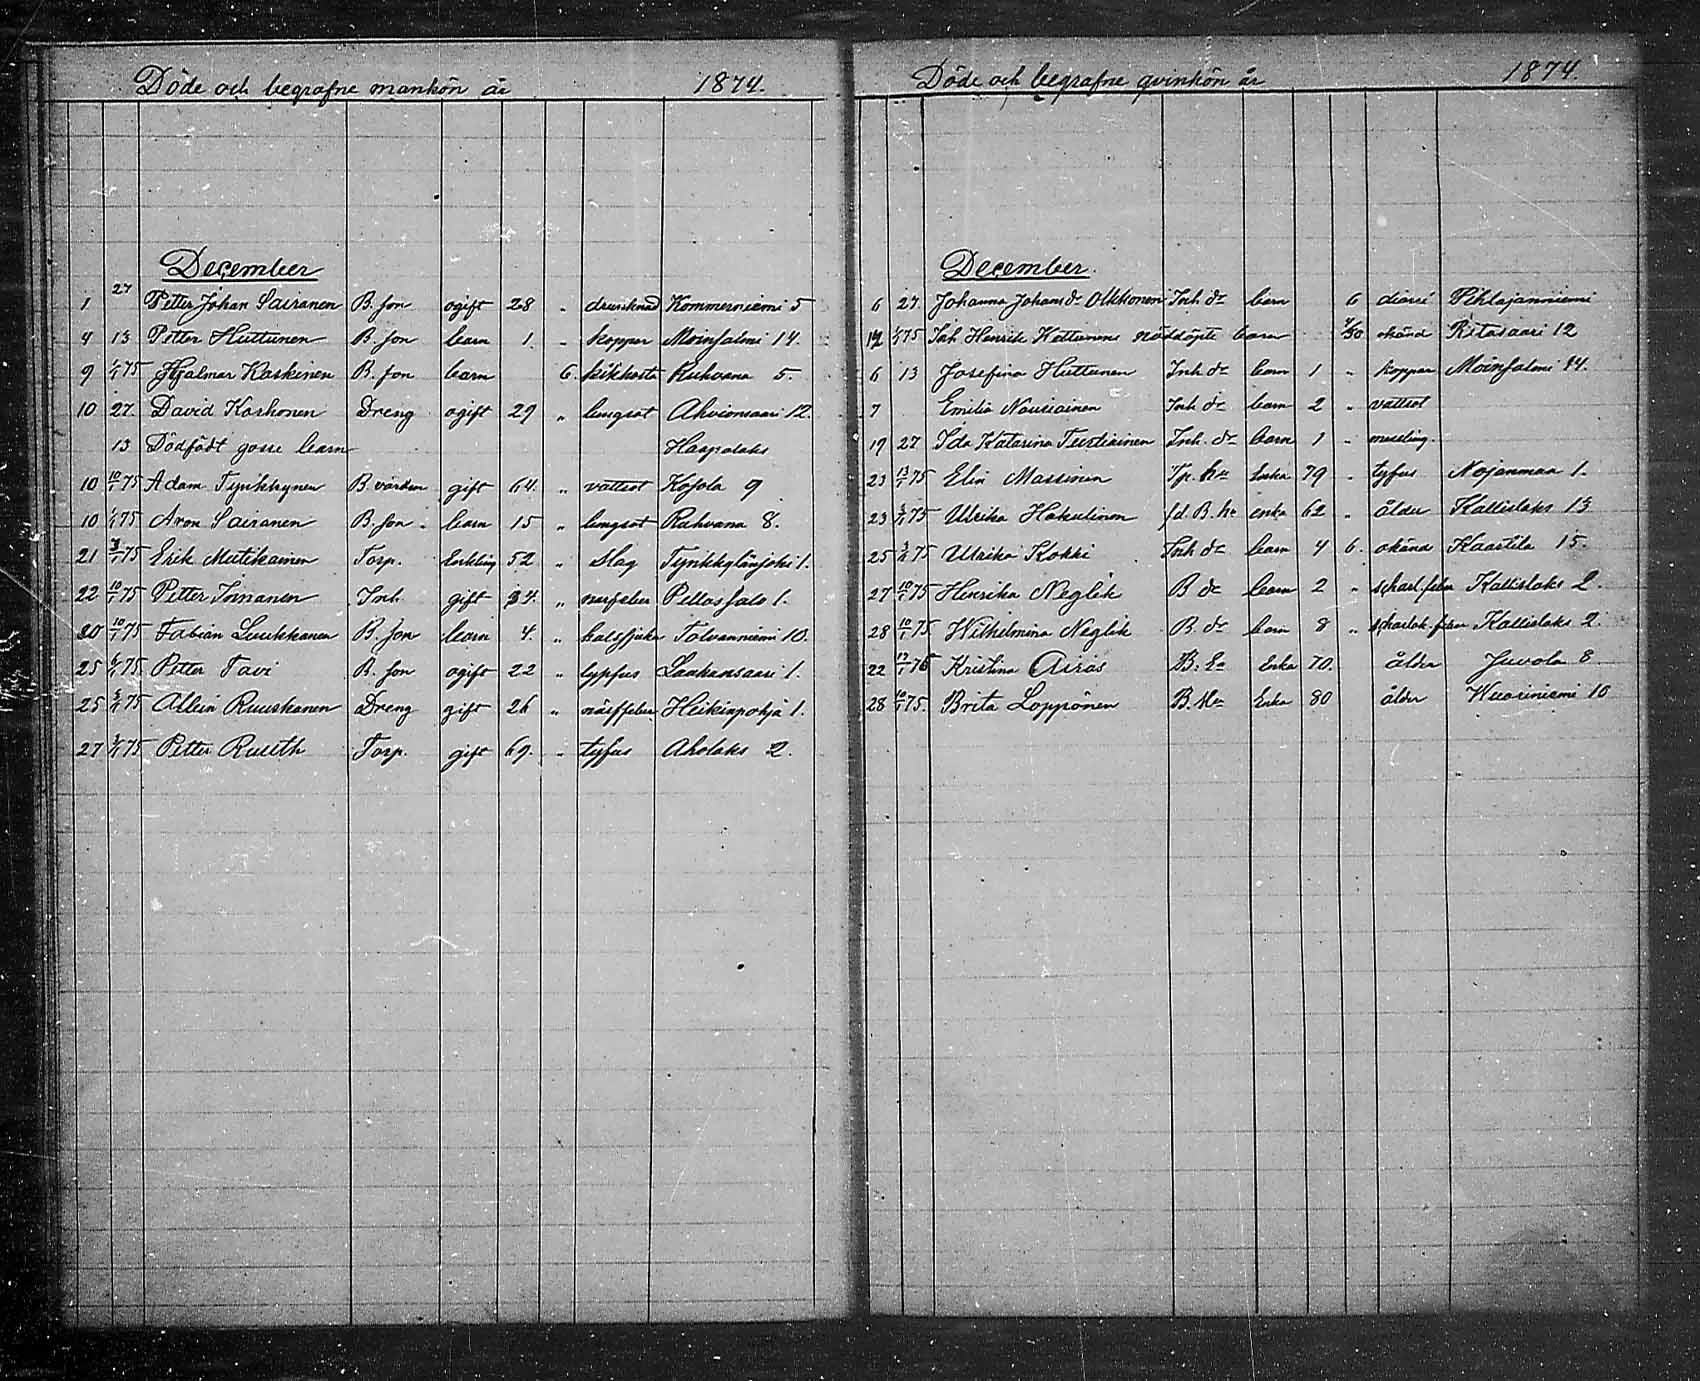 Döde och begrafne mankön år 1874.
December
1 27 Petter Johan Sairanen B. son ogift 28 „ drunknad Kommerniemi 5
4 13 Petter Huttunen B. son barn 1. „ koppor Moinsalmi 14.
9 1/1 75 Hjalmar Kaskinen B. son barn 6. kikhosta Ruhvana 5.
10 27. David Korhonen Dreng ogift 29 „ lungsot Ahvionsaari 12.
13 Dödfödt gosse barn Haapalaks
10 10/1 75 Adam Tynkkynen B. värden gift 64. „ vattsot Kosola 9
10 1/1 75 Aron Sairanen B. son barn 15 „ lungsot Ruhvana 8.
21 3/1 75 Erik Mutikainen Torp. Enkling 52 „ slag Tynkkylänjoki 1.
22 10/1 75 Petter Innanen Inh. gift 34. „ nerfeber Pellossalo 1.
20 10/1 75 Fabian Luukkanen B. son barn 4. „ halssjuka Tolvanniemi 10.
25 6/1 75. Petter Tavi B. son ogift 22 „ typfus Laukansaari 1.
25 75 Allein Ruuskanen Dreng gift 26 „ närffeber Heikinpohja 1.
27 75 Petter Rueth Torp. gift 69. „ tyfus Aholaks 2.
Döde och begrafne qvinkön år 1874.
December.
6 27. Johanna Johansdr Olkkonen Inh. dr barn 6 diarré Pihlajanniemi
12 1/1 75 Inh Henrik Kettunens nöddöpte barn 1/30 okänd Ritasaari 12
6 13 Josefina Huttunen Inh dr barn 1 „ koppor Moinsalmi 14.
7 Emilia Nousiainen Inh dr barn 2 „ vattsot
19 27 Ida Katarina Tiistiäinen Inh. dr barn 1 „ messling.
23 13/1 75 Elin Massinen Tp. hu Enka 79 „ tyfus Nojanmaa 1.
23 75 Ulrika Hakulinen fd. B. hu enka 62 „ ålder Kallislaks 13
25 75 Ulrika Kokki Inh dr barn 4 6. okänd Kaartila 15.
27 10/1 75 Henrika Neglik B dr barn 2 „ scharl. feber Kallislaks 2.
28 10/1 75. Wilhelmina Neglik B. dr barn 8 „ scharlak. feber Kallislaks 2.
22 17/1 75 Kristina Airas B. Ea Enka 70. ålder Juvola 8
28 10/1 75. Brita Loppönen B. Ma Enka 80 ålder Kuosiniemi 10